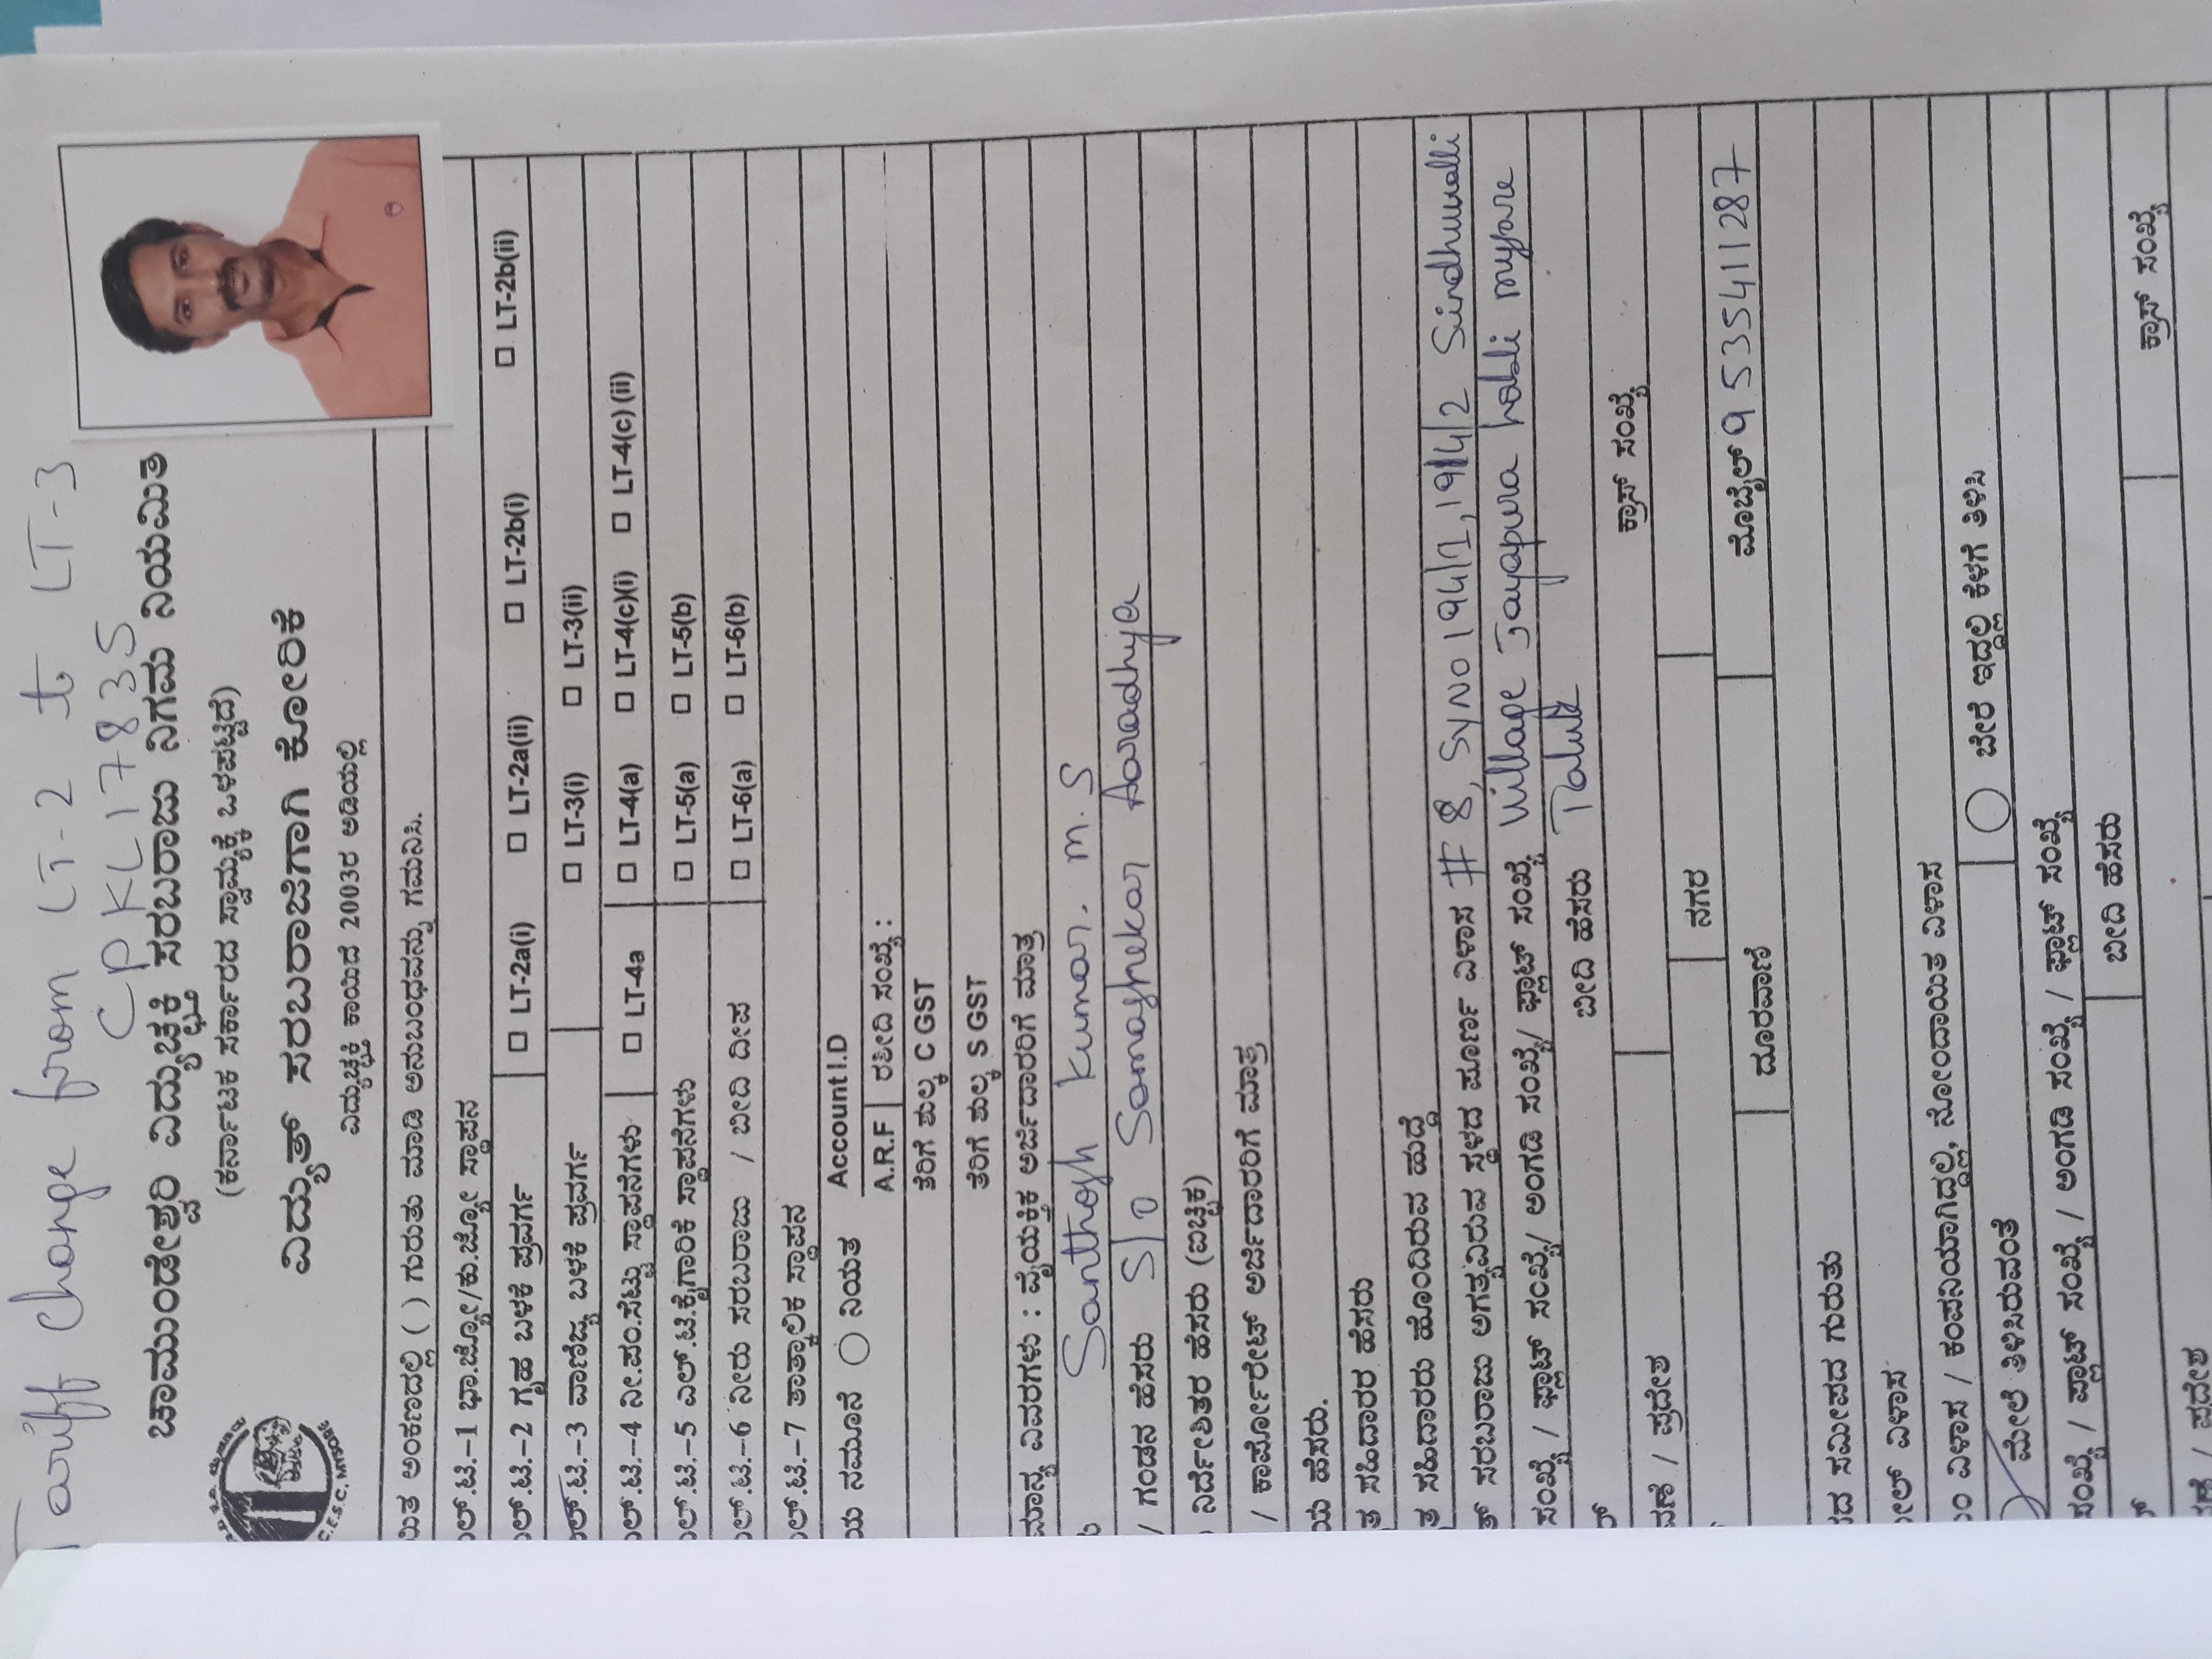 Tariff Change from LT-2 to LT-3
CPKL17835
ಚಾಮುಂಡೇಶ್ವರಿ ವಿದ್ಯುಚ್ಛಕ್ತಿ ಸರಬರಾಜು ನಿಗಮ ನಿಯಮಿತ
(ಕರ್ನಾಟಕ ಸರ್ಕಾರದ ಸ್ವಾಮ್ಯಕ್ಕೆ ಒಳಪಟ್ಟಿದೆ)
ವಿದ್ಯುತ್ ಸರಬರಾಜಿಗಾಗಿ ಕೋರಿಕೆ
ವಿದ್ಯುಚ್ಛಕ್ತಿ ಕಾಯಿದೆ 2003ರ ಅಡಿಯಲ್ಲಿ
ಅಂಕಣದಲ್ಲಿ ( ) ಗುರುತು ಮಾಡಿ ಅನುಬಂಧವನ್ನು ಗಮನಿಸಿ.
ಲ್.ಟಿ.-1 ಭಾ.ಜ್ಯೋ/ಕು.ಜ್ಯೋ ಸ್ಥಾಪನ
ಲ್.ಟಿ.-2 ಗೃಹ ಬಳಕೆ ಪ್ರವರ್ಗ ☐ LT-2a(i) ☐ LT-2a(ii) ☐ LT-2b(i) ☐ LT-2b(ii)
ಲ್.ಟಿ.-3 ವಾಣಿಜ್ಯ ಬಳಕೆ ಪ್ರವರ್ಗ ☐ LT-3(i) ☐ LT-3(ii)
ಲ್.ಟಿ.-4 ನೀ.ಪಂ.ಸೆಟ್ಟು ಸ್ಥಾಪನೆಗಳು ☐ LT-4a ☐ LT-4(a) ☐ LT-4(c)(i) ☐ LT-4(c) (ii)
ಲ್.ಟಿ.-5 ಎಲ್.ಟಿ.ಕೈಗಾರಿಕೆ ಸ್ಥಾಪನೆಗಳು ☐ LT-5(a) ☐ LT-5(b)
ಲ್.ಟಿ.-6 ನೀರು ಸರಬರಾಜು / ಬೀದಿ ದೀಪ ☐ LT-6(a) ☐ LT-6(b)
ಲ್.ಟಿ.-7 ತಾತ್ಕಾಲಿಕ ಸ್ಥಾಪನ
ಯ ನಮೂನೆ ○ ನಿಯತ Account I.D
A.R.F ರಶೀದಿ ಸಂಖ್ಯೆ :
ತೆರಿಗೆ ಶುಲ್ಕ C GST
ತೆರಿಗೆ ಶುಲ್ಕ S GST
ಮಾನ್ಯ ವಿವರಗಳು : ವೈಯಕ್ತಿಕ ಅರ್ಜಿದಾರರಿಗೆ ಮಾತ್ರ
Santhosh Kumar. M. S
/ ಗಂಡನ ಹೆಸರು S/o Somashekar Aaradhya
ನಿರ್ದೇಶಿತರ ಹೆಸರು (ಐಚ್ಛಿಕ)
/ ಕಾರ್ಪೋರೇಟ್ ಅರ್ಜಿದಾರರಿಗೆ ಮಾತ್ರ
ಯ ಹೆಸರು.
ತ ಸಹಿದಾರರ ಹೆಸರು
ತ ಸಹಿದಾರರು ಹೊಂದಿರುವ ಹುದ್ದೆ
ತ್ ಸರಬರಾಜು ಅಗತ್ಯವಿರುವ ಸ್ಥಳದ ಪೂರ್ಣ ವಿಳಾಸ # 8, SY NO 194/1, 194/2 Sindhuvalli
ಸಂಖ್ಯೆ / ಫ್ಲಾಟ್ ಸಂಖ್ಯೆ/ ಅಂಗಡಿ ಸಂಖ್ಯೆ/ ಪ್ಲಾಟ್ ಸಂಖ್ಯೆ Village Jayapura hobli mysore
ಬೀದಿ ಹೆಸರು Taluk
ಕ್ರಾಸ್ ಸಂಖ್ಯೆ
ವಣೆ / ಪ್ರದೇಶ ನಗರ
ದೂರವಾಣಿ ಮೊಬೈಲ್ 9535411287
ದ ಸಮೀಪದ ಗುರುತು
ೀಲ್ ವಿಳಾಸ
ಂ ವಿಳಾಸ / ಕಂಪನಿಯಾಗಿದ್ದಲ್ಲಿ, ನೋಂದಾಯಿತ ವಿಳಾಸ
ಮೇಲೆ ತಿಳಿಸಿರುವಂತೆ ○ ಬೇರೆ ಇದ್ದಲ್ಲಿ ಕೆಳಗೆ ತಿಳಿಸಿ
ಸಂಖ್ಯೆ / ಪ್ಲಾಟ್ ಸಂಖ್ಯೆ / ಅಂಗಡಿ ಸಂಖ್ಯೆ / ಫ್ಲಾಟ್ ಸಂಖ್ಯೆ
ಬೀದಿ ಹೆಸರು ಕ್ರಾಸ್ ಸಂಖ್ಯೆ
ವಣೆ / ಪ್ರದೇಶ